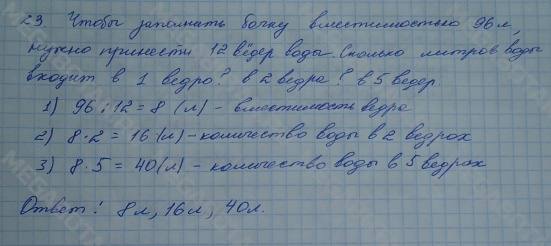 23 Чтобы заполнать бочку вместимостью 96 л,
нужно принести 12 вёдер воды. Сколько литров воды
входит в 1 ведро? в 2 ведра? в 5 ведер.
1) 96 : 12 = 8 (л) - вместимость ведра
2) 8 · 2 = 16 (л) - количество воды в 2 ведрах
3) 8 · 5 = 40 (л) - количество воды в 5 ведрах
Ответ: 8 л, 16 л, 40 л.